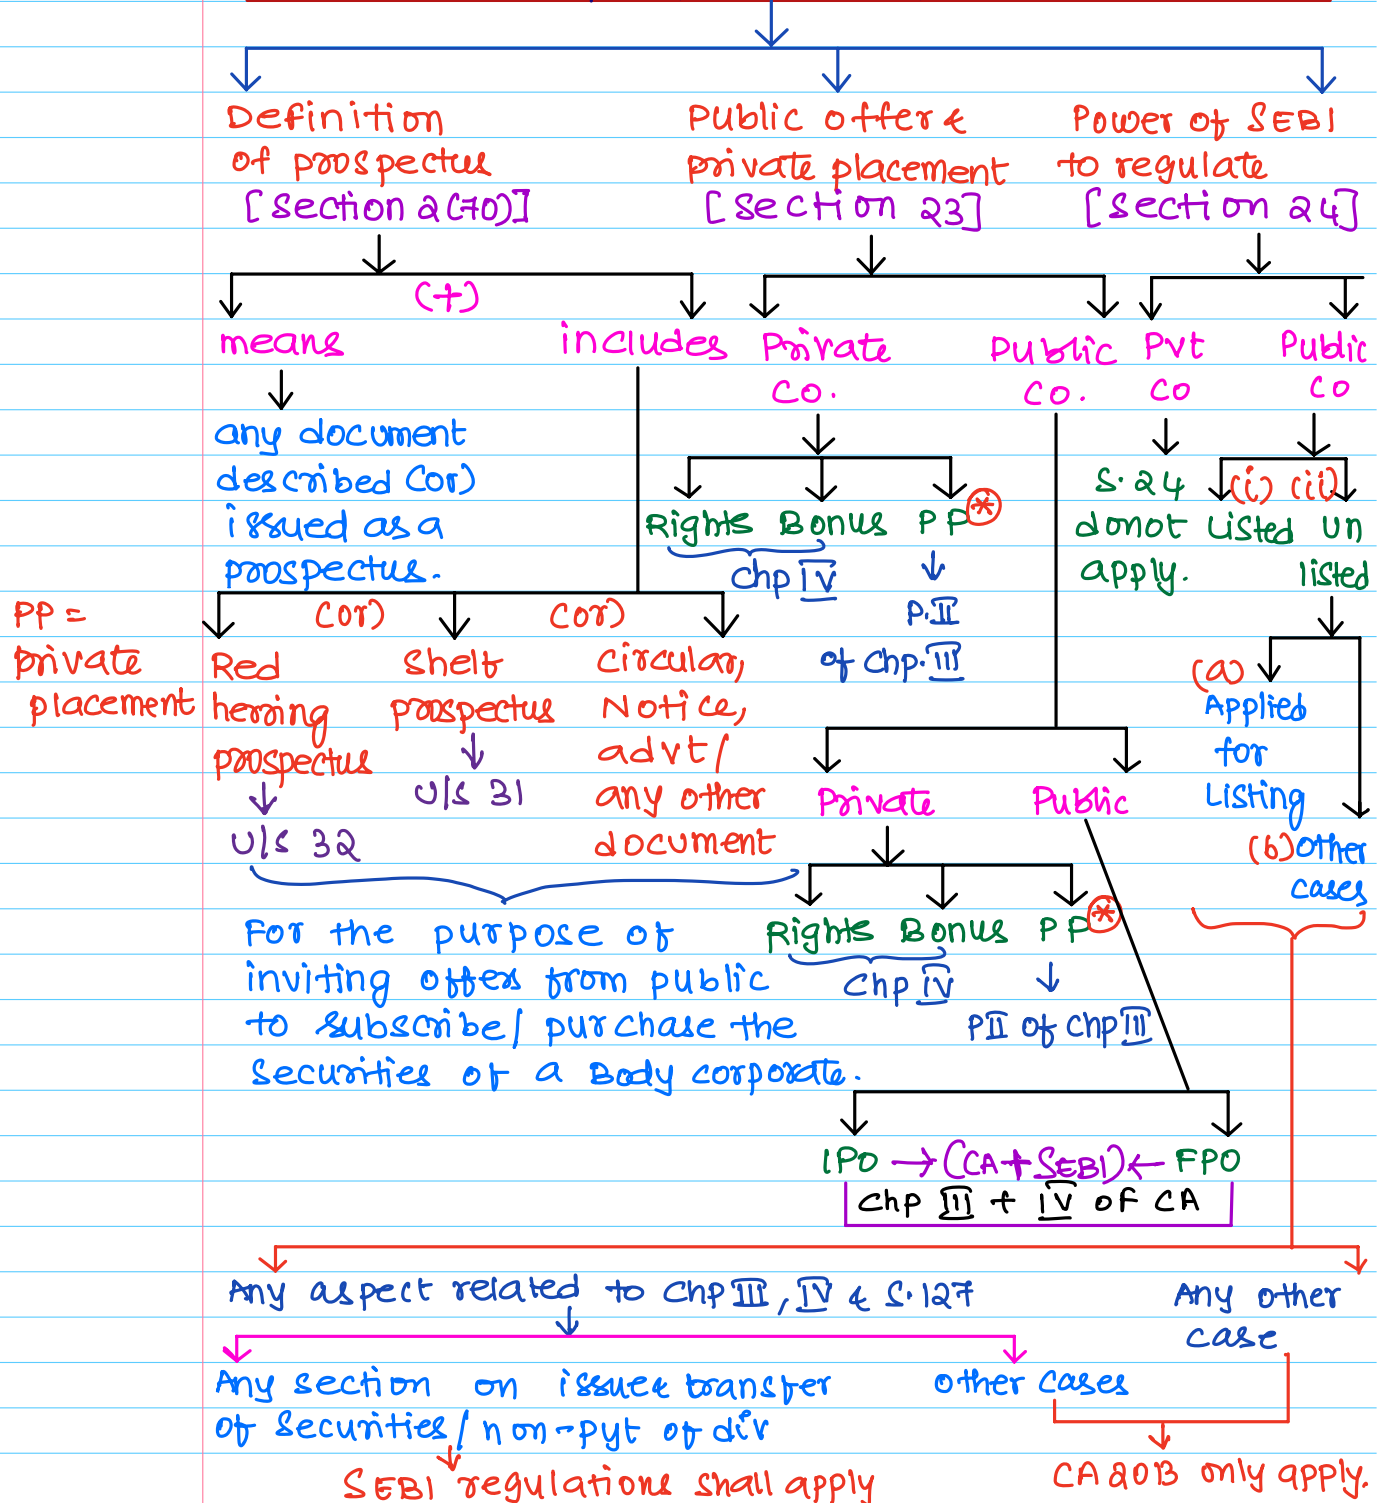 Definition
of prospectus
[Section 2(70)]
Public offer &
private placement
[Section 23]
Power of SEBI
to regulate
[Section 24]
(+)
means
includes
any document
described (or)
issued as a
prospectus.
(or)
(or)
Red
herring
prospectus
U/S 32
Shelf
prospectus
U/S 31
Circular,
Notice,
advt/
any other
document
For the purpose of
inviting offers from public
to subscribe/ purchase the
Securities of a Body corporate.
PP =
private
placement
Private
CO.
Rights Bonus PP *
Chp IV
P.II
of Chp.III
Public
CO.
Private
Public
Rights Bonus PP *
Chp IV
PII of Chp III
IPO → (CA+SEBI) ← FPO
Chp III + IV of CA
Pvt
CO
S.24
donot
apply.
Public
CO
(i) (ii)
Listed
Un
listed
(a)
Applied
for
Listing
(b) Other
cases
Any aspect related to Chp III, IV & S.127
Any other
case
Any section on issue & transfer
of Securities/ non-pyt of div
other cases
SEBI regulations shall apply
CA 2013 only apply.